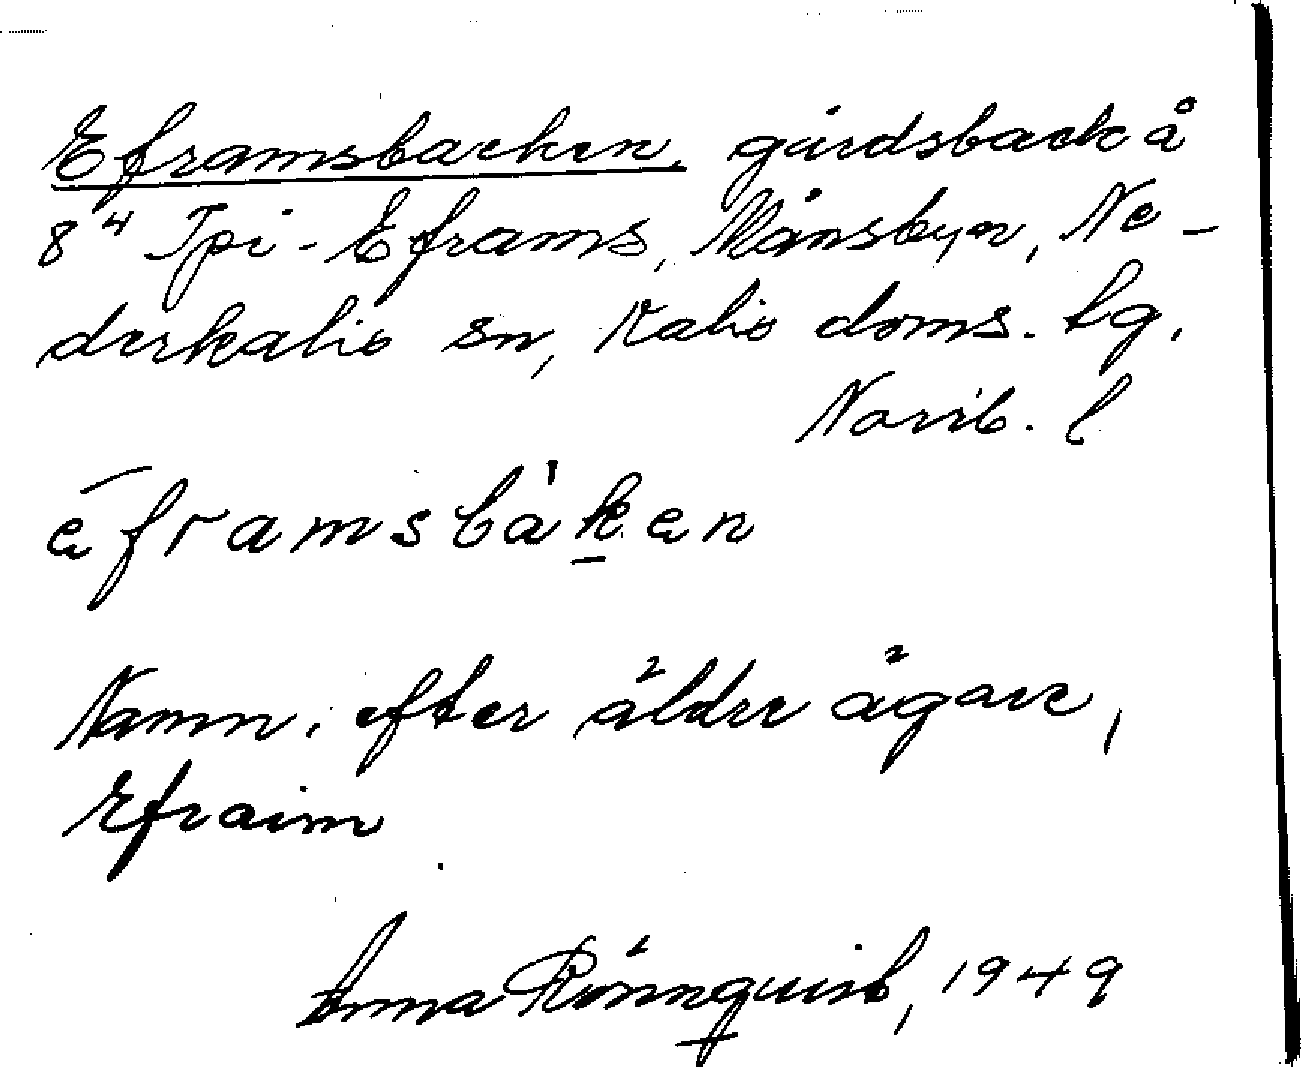 Eframsbacken, gårdsback å
8⁴ Ipi-Eframs, Månsbyn, Ne-
derkalix sn, Kalix doms. tg.
Norrb. l
ēframsbàken
Namn. efter äldre ägare,
Efraim
Anna Rönnquist, 1949